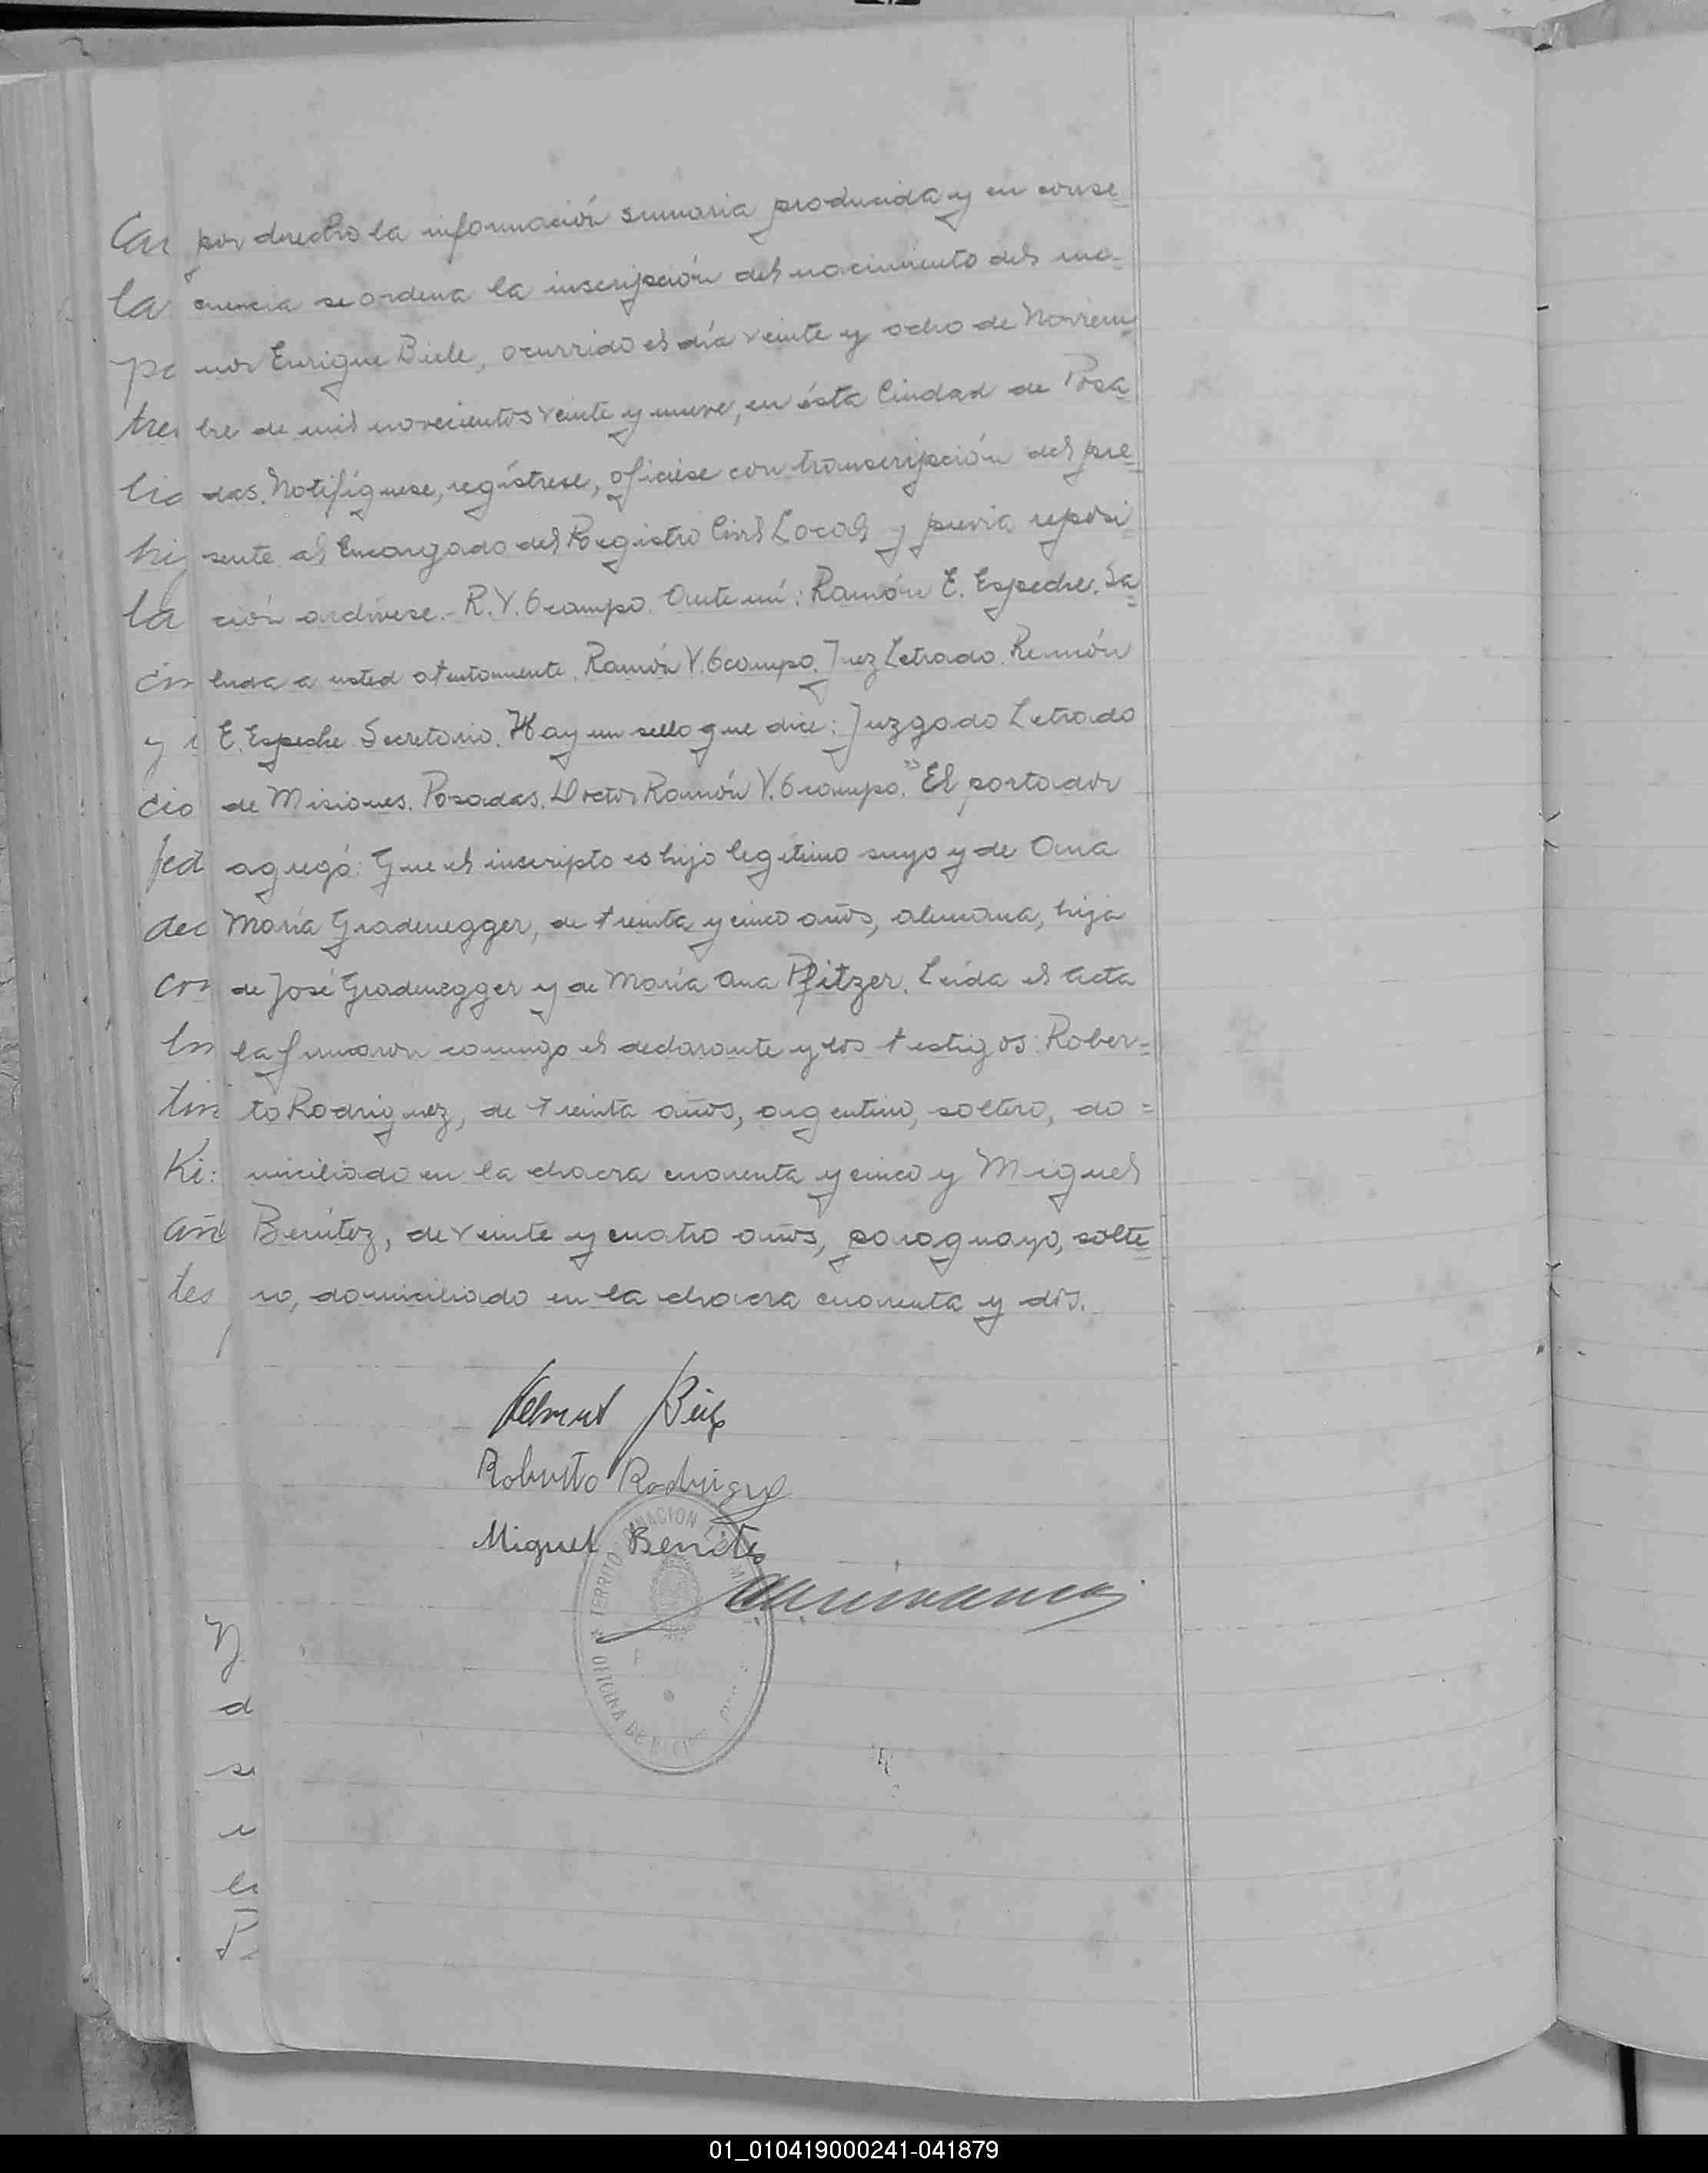 por derecho la información sumaria producida y en conse=
cuencia se ordena la inscripción del nacimiento del me=
nor Enrique Biele, ocurrido el día veinte y ocho de Noviem=
bre de mil novecientos veinte y nueve, en ésta Ciudad de Posa=
das. Notifíquese, regístrese, ofíciese con transcripción del pre=
sente al Encargado del Registro Civil Local y previa reposi=
ción archívese.- R.V. Ocampo. Ante mí: Ramón E. Espeche. Sa=
luda a usted atentamente. Ramón V. Ocampo. Juez Letrado. Ramón
E. Espeche. Secretario. Hay un sello que dice: Juzgado Letrado
de Misiones. Posadas. Doctor Ramón V. Ocampo." El portador
agregó: Que el inscripto es hijo legítimo suyo y de Ana
María Gradenegger, de treinta y cinco años, alemana, hija
de José Gradenegger y de María Ana Pfitzer. Leída el acta
la firmaron conmigo el declarante y los testigos: Rober=
to Rodriguez, de treinta años, argentino, soltero, do=
miciliado en la chacra cuarenta y cinco y Miguel
Benítez, de veinte y cuatro años, paraguayo, solte=
ro, domiciliado en la chacra cuarenta y dos.
Roberto Rodriguez
Miguel Benites
OFICINA DE
01_010419000241-041879